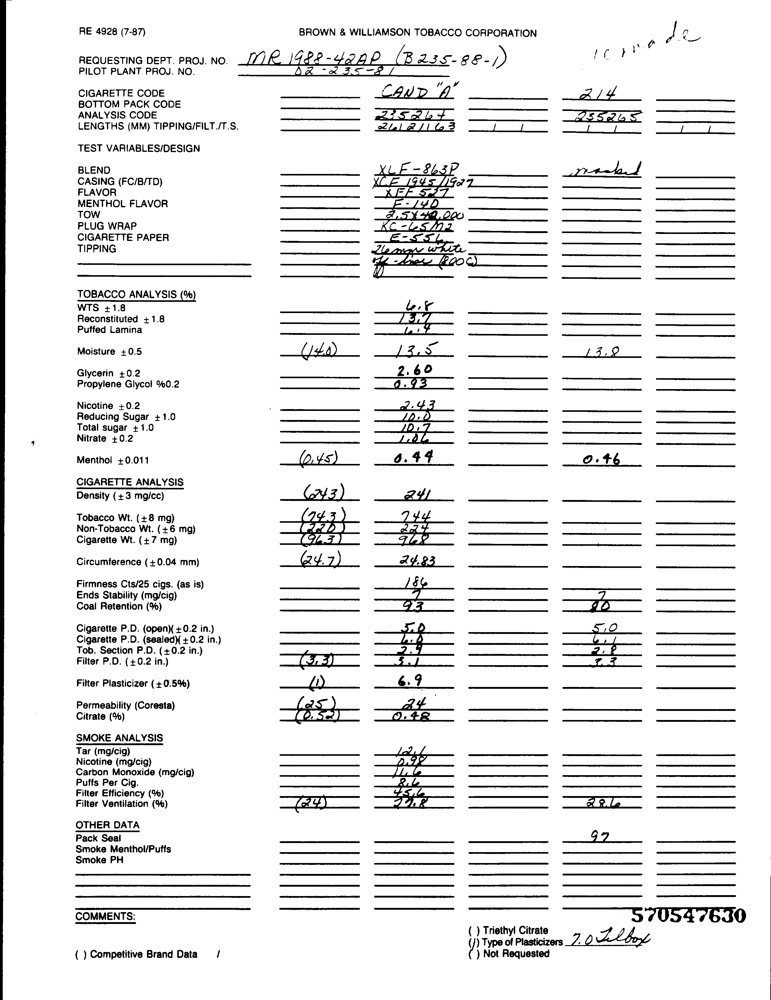 RE 4928 (7-87) BROWN & WILLIAMSON TOBACCO CORPORATION
REQUESTING DEPT. PROJ. NO. MR 1988-42AP (B235-88-1)
PILOT PLANT PROJ. NO. 02-235-81
CIGARETTE CODE CAND "A" 214
BOTTOM PACK CODE
ANALYSIS CODE 235264 235265
LENGTHS (MM) TIPPING/FILT./T.S. 26/21/63 / / / / / /
TEST VARIABLES/DESIGN
BLEND XLF-863P masked
CASING (FC/B/TD) XCF 1945/1927
FLAVOR XFF 527
MENTHOL FLAVOR F-140
TOW 2.5X42,000
PLUG WRAP KC-65M2
CIGARETTE PAPER E-556
TIPPING 26 mm white
off-line (800C)
TOBACCO ANALYSIS (%)
WTS ±1.8 6.8
Reconstituted ±1.8 13.7
Puffed Lamina 6.4
Moisture ±0.5 (14.0) 13.5 13.8
Glycerin ±0.2 2.60
Propylene Glycol %0.2 0.93
Nicotine ±0.2 2.43
Reducing Sugar ±1.0 10.0
Total sugar ±1.0 10.7
Nitrate ±0.2 1.06
Menthol ±0.011 (0.45) 0.44 0.46
CIGARETTE ANALYSIS
Density (±3 mg/cc) (243) 241
Tobacco Wt. (±8 mg) (743) 744
Non-Tobacco Wt. (±6 mg) (220) 224
Cigarette Wt. (±7 mg) (963) 968
Circumference (±0.04 mm) (24.7) 24.83
Firmness Cts/25 cigs. (as is) 186
Ends Stability (mg/cig) 7 7
Coal Retention (%) 93 80
Cigarette P.D. (open)(±0.2 in.) 5.0 5.0
Cigarette P.D. (sealed)(±0.2 in.) 6.0 6.1
Tob. Section P.D. (±0.2 in.) 2.9 2.8
Filter P.D. (±0.2 in.) (3.3) 3.1 3.3
Filter Plasticizer (±0.5%) (1) 6.9
Permeability (Coresta) (25) 24
Citrate (%) (0.52) 0.48
SMOKE ANALYSIS
Tar (mg/cig) 12.1
Nicotine (mg/cig) 0.98
Carbon Monoxide (mg/cig) 11.6
Puffs Per Cig. 8.6
Filter Efficiency (%) 45.6
Filter Ventilation (%) (24) 27.8 28.6
OTHER DATA
Pack Seal 97
Smoke Menthol/Puffs
Smoke PH
COMMENTS: 570547630
( ) Triethyl Citrate
(/) Type of Plasticizers 7.0
( ) Competitive Brand Data / ( ) Not Requested